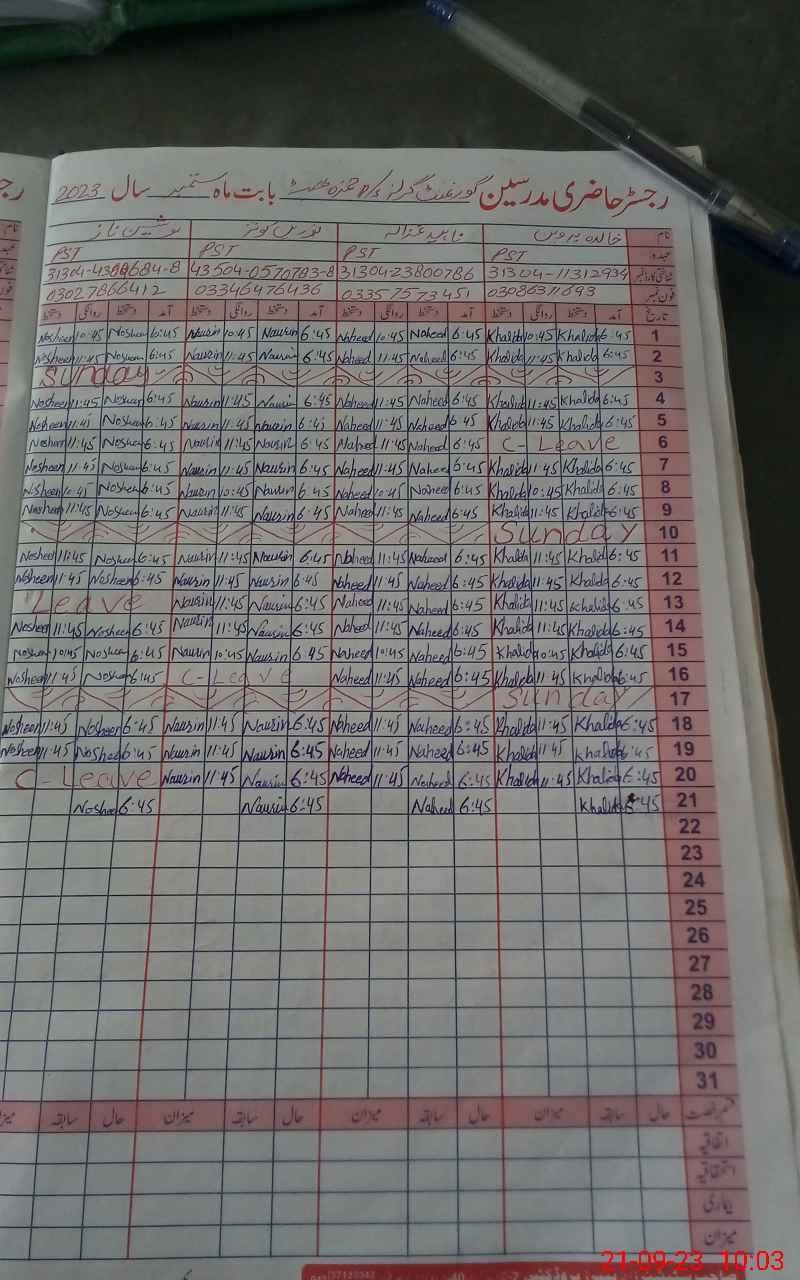 رجسٹر حاضری مدرسین گورنمنٹ گرلز حمزہ بابت ماہ ستمبر سال 2023
نام خالدہ پروین ناہید غزالہ نورس کوثر نوشین ناز
عہدہ PST PST PST PST
شناختی کارڈ نمبر 31304-11312934 31304-23800786 43504-0570783-8
فون نمبر 03086311693 03357573451 03346476436 03027866412
تاریخ آمد دستخط روانگی دستخط آمد دستخط روانگی دستخط آمد دستخط روانگی دستخط آمد دستخط روانگی دستخط
Nosheen 10:45 Nosheen 6:45 Naurin 10:45 Naurin 6:45 Naheed 10:45 Naheed 6:45 Khalida 10:45 Khalida 6:45 1
Nosheen 11:45 Nosheen 6:45 Naurin 11:45 Naurin 6:45 Naheed 11:45 Naheed 6:45 Khalida 11:45 Khalida 6:45 2
Sunday 3
Nosheen 11:45 Nosheen 6:45 Naurin 11:45 Naurin 6:45 Naheed 11:45 Naheed 6:45 Khalida 11:45 Khalida 6:45 4
Nosheen 11:45 Nosheen 6:45 Naurin 11:45 Naurin 6:45 Naheed 11:45 Naheed 6:45 Khalida 11:45 Khalida 6:45 5
Nosheen 11:45 Nosheen 6:45 Naurin 11:45 Naurin 6:45 Naheed 11:45 Naheed 6:45 C- Leave 6
Nosheen 11:45 Nosheen 6:45 Naurin 11:45 Naurin 6:45 Naheed 11:45 Naheed 6:45 Khalida 11:45 Khalida 6:45 7
Nosheen 10:45 Nosheen 6:45 Naurin 10:45 Naurin 6:45 Naheed 10:45 Naheed 6:45 Khalida 10:45 Khalida 6:45 8
Nosheen 11:45 Nosheen 6:45 Naurin 11:45 Naurin 6:45 Naheed 11:45 Naheed 6:45 Khalida 11:45 Khalida 6:45 9
Sunday 10
Nosheen 11:45 Nosheen 6:45 Naurin 11:45 Naurin 6:45 Naheed 11:45 Naheed 6:45 Khalida 11:45 Khalida 6:45 11
Nosheen 11:45 Nosheen 6:45 Naurin 11:45 Naurin 6:45 Naheed 11:45 Naheed 6:45 Khalida 11:45 Khalida 6:45 12
Leave Naurin 11:45 Naurin 6:45 Naheed 11:45 Naheed 6:45 Khalida 11:45 Khalida 6:45 13
Nosheen 11:45 Nosheen 6:45 Naurin 11:45 Naurin 6:45 Naheed 11:45 Naheed 6:45 Khalida 11:45 Khalida 6:45 14
Nosheen 10:45 Nosheen 6:45 Naurin 10:45 Naurin 6:45 Naheed 10:45 Naheed 6:45 Khalida 10:45 Khalida 6:45 15
Nosheen 11:45 Nosheen 6:45 C-Leave Naheed 11:45 Naheed 6:45 Khalida 11:45 Khalida 6:45 16
Sunday 17
Nosheen 11:45 Nosheen 6:45 Naurin 11:45 Naurin 6:45 Naheed 11:45 Naheed 6:45 Khalida 11:45 Khalida 6:45 18
Nosheen 11:45 Nosheen 6:45 Naurin 11:45 Naurin 6:45 Naheed 11:45 Naheed 6:45 Khalida 11:45 Khalida 6:45 19
C-Leave Naurin 11:45 Naurin 6:45 Naheed 11:45 Naheed 6:45 Khalida 11:45 Khalida 6:45 20
Nosheen 6:45 Naurin 6:45 Naheed 6:45 Khalida 6:45 21
22
23
24
25
26
27
28
29
30
31
قسم رخصت حال سابقہ میزان حال سابقہ میزان حال سابقہ میزان حال سابقہ میزان
اتفاقیہ
استحقاقیہ
بیماری
میزان
21-09-23 10:03